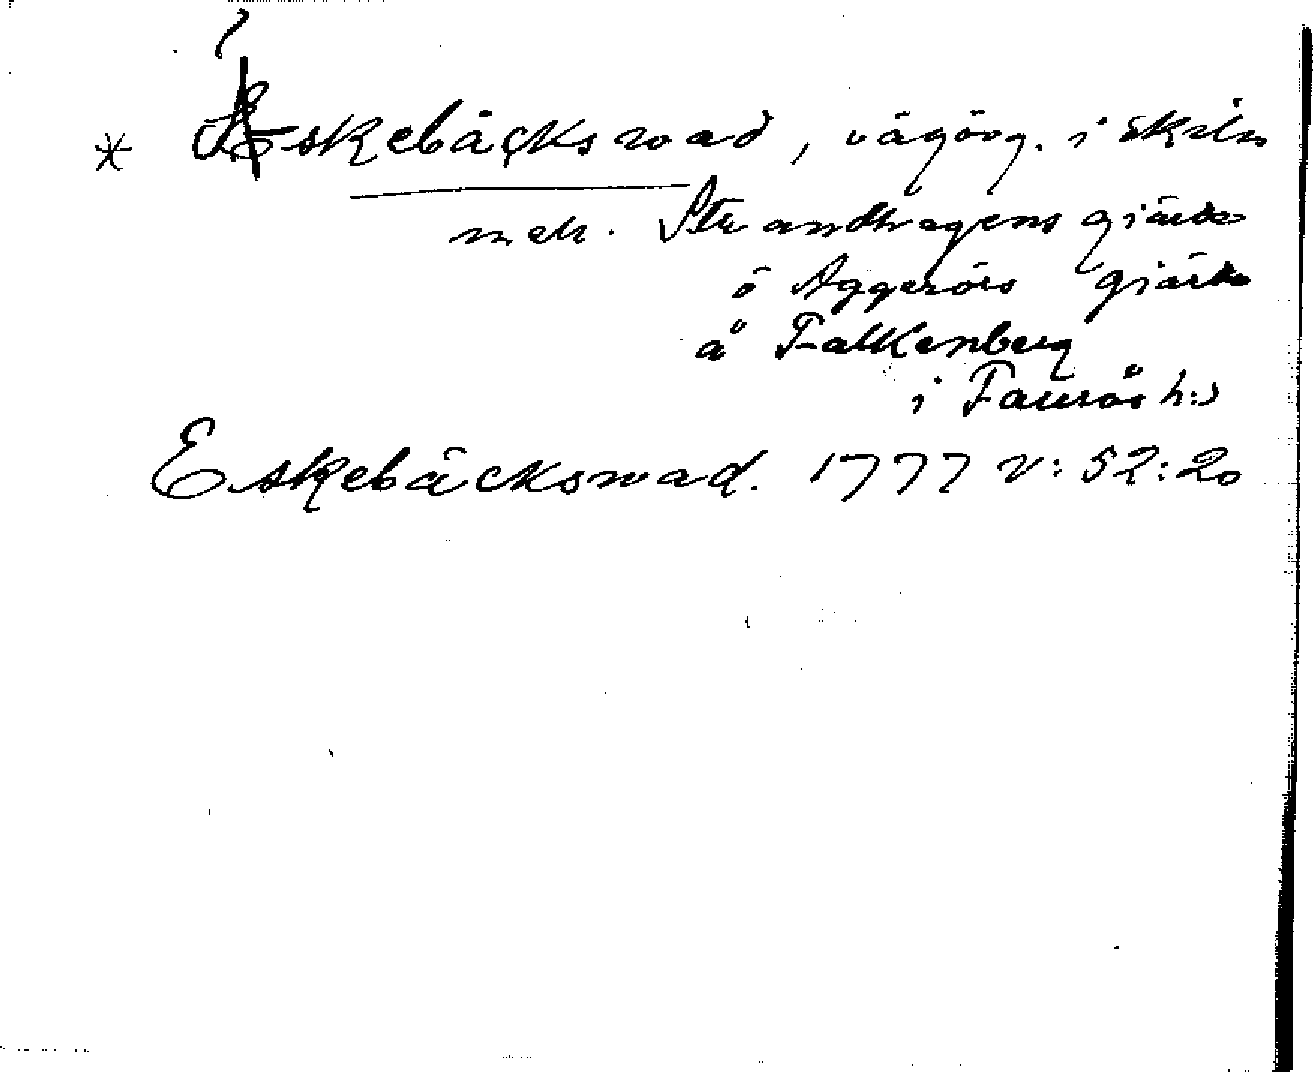 ?
* Eskebäckswad, vägövg. i skiln
mell. Strandhagens gjärde
o Aggerörs gjärde
å Falkenberg
i Faurås h:d
Eskebäckswad. 1777 V: 52:20